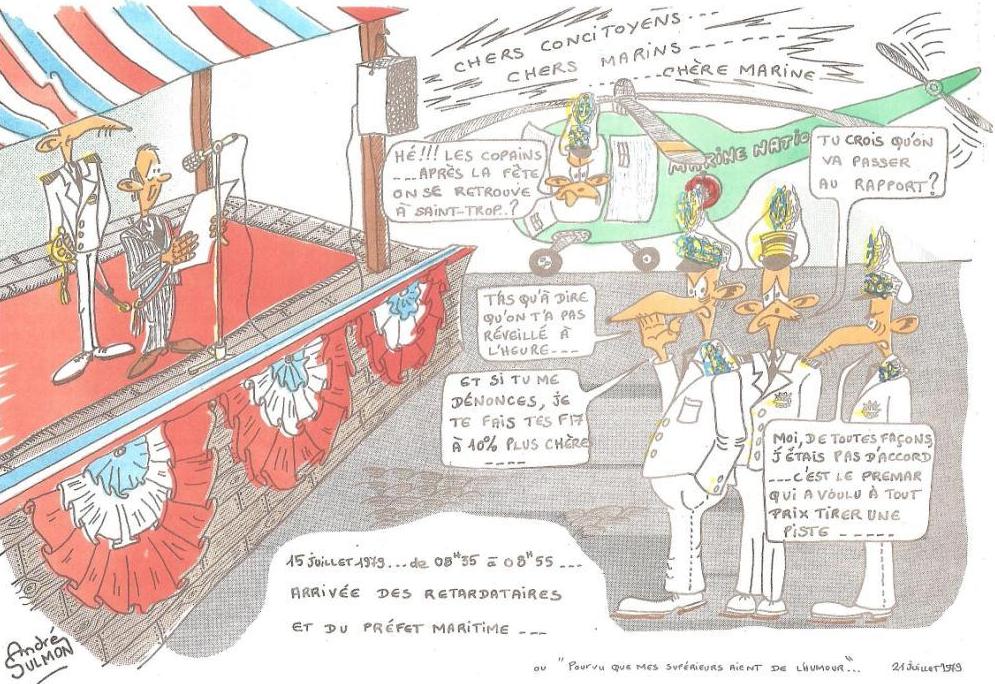 CHERS CONCITOYENS...
CHERS MARINS-----
----CHÈRE MARINE---
HÉ!!! LES COPAINS
---APRÈS LA FÊTE
ON SE RETROUVE
À SAINT-TROP..?
MARINE NATIO
TU CROIS QU'ON
VA PASSER
AU RAPPORT?
T'AS QU'À DIRE
QU'ON T'A PAS
RÉVEILLÉ À
L'HEURE----
ET SI TU ME
DÉNONCES, JE
TE FAIS TES F17
À 10% PLUS CHÈRE
----
MOI, DE TOUTES FAÇONS,
J'ÉTAIS PAS D'ACCORD
---C'EST LE PREMAR
QUI A VOULU À TOUT
PRIX TIRER UNE
PISTE -----
15 JUILLET 1979...de 08H35 à 08H55 ---
ARRIVÉE DES RETARDATAIRES
ET DU PRÉFET MARITIME ---
André
SULMON
OU "POURVU QUE MES SUPÉRIEURS AIENT DE L'HUMOUR"... 21 JUILLET 1979